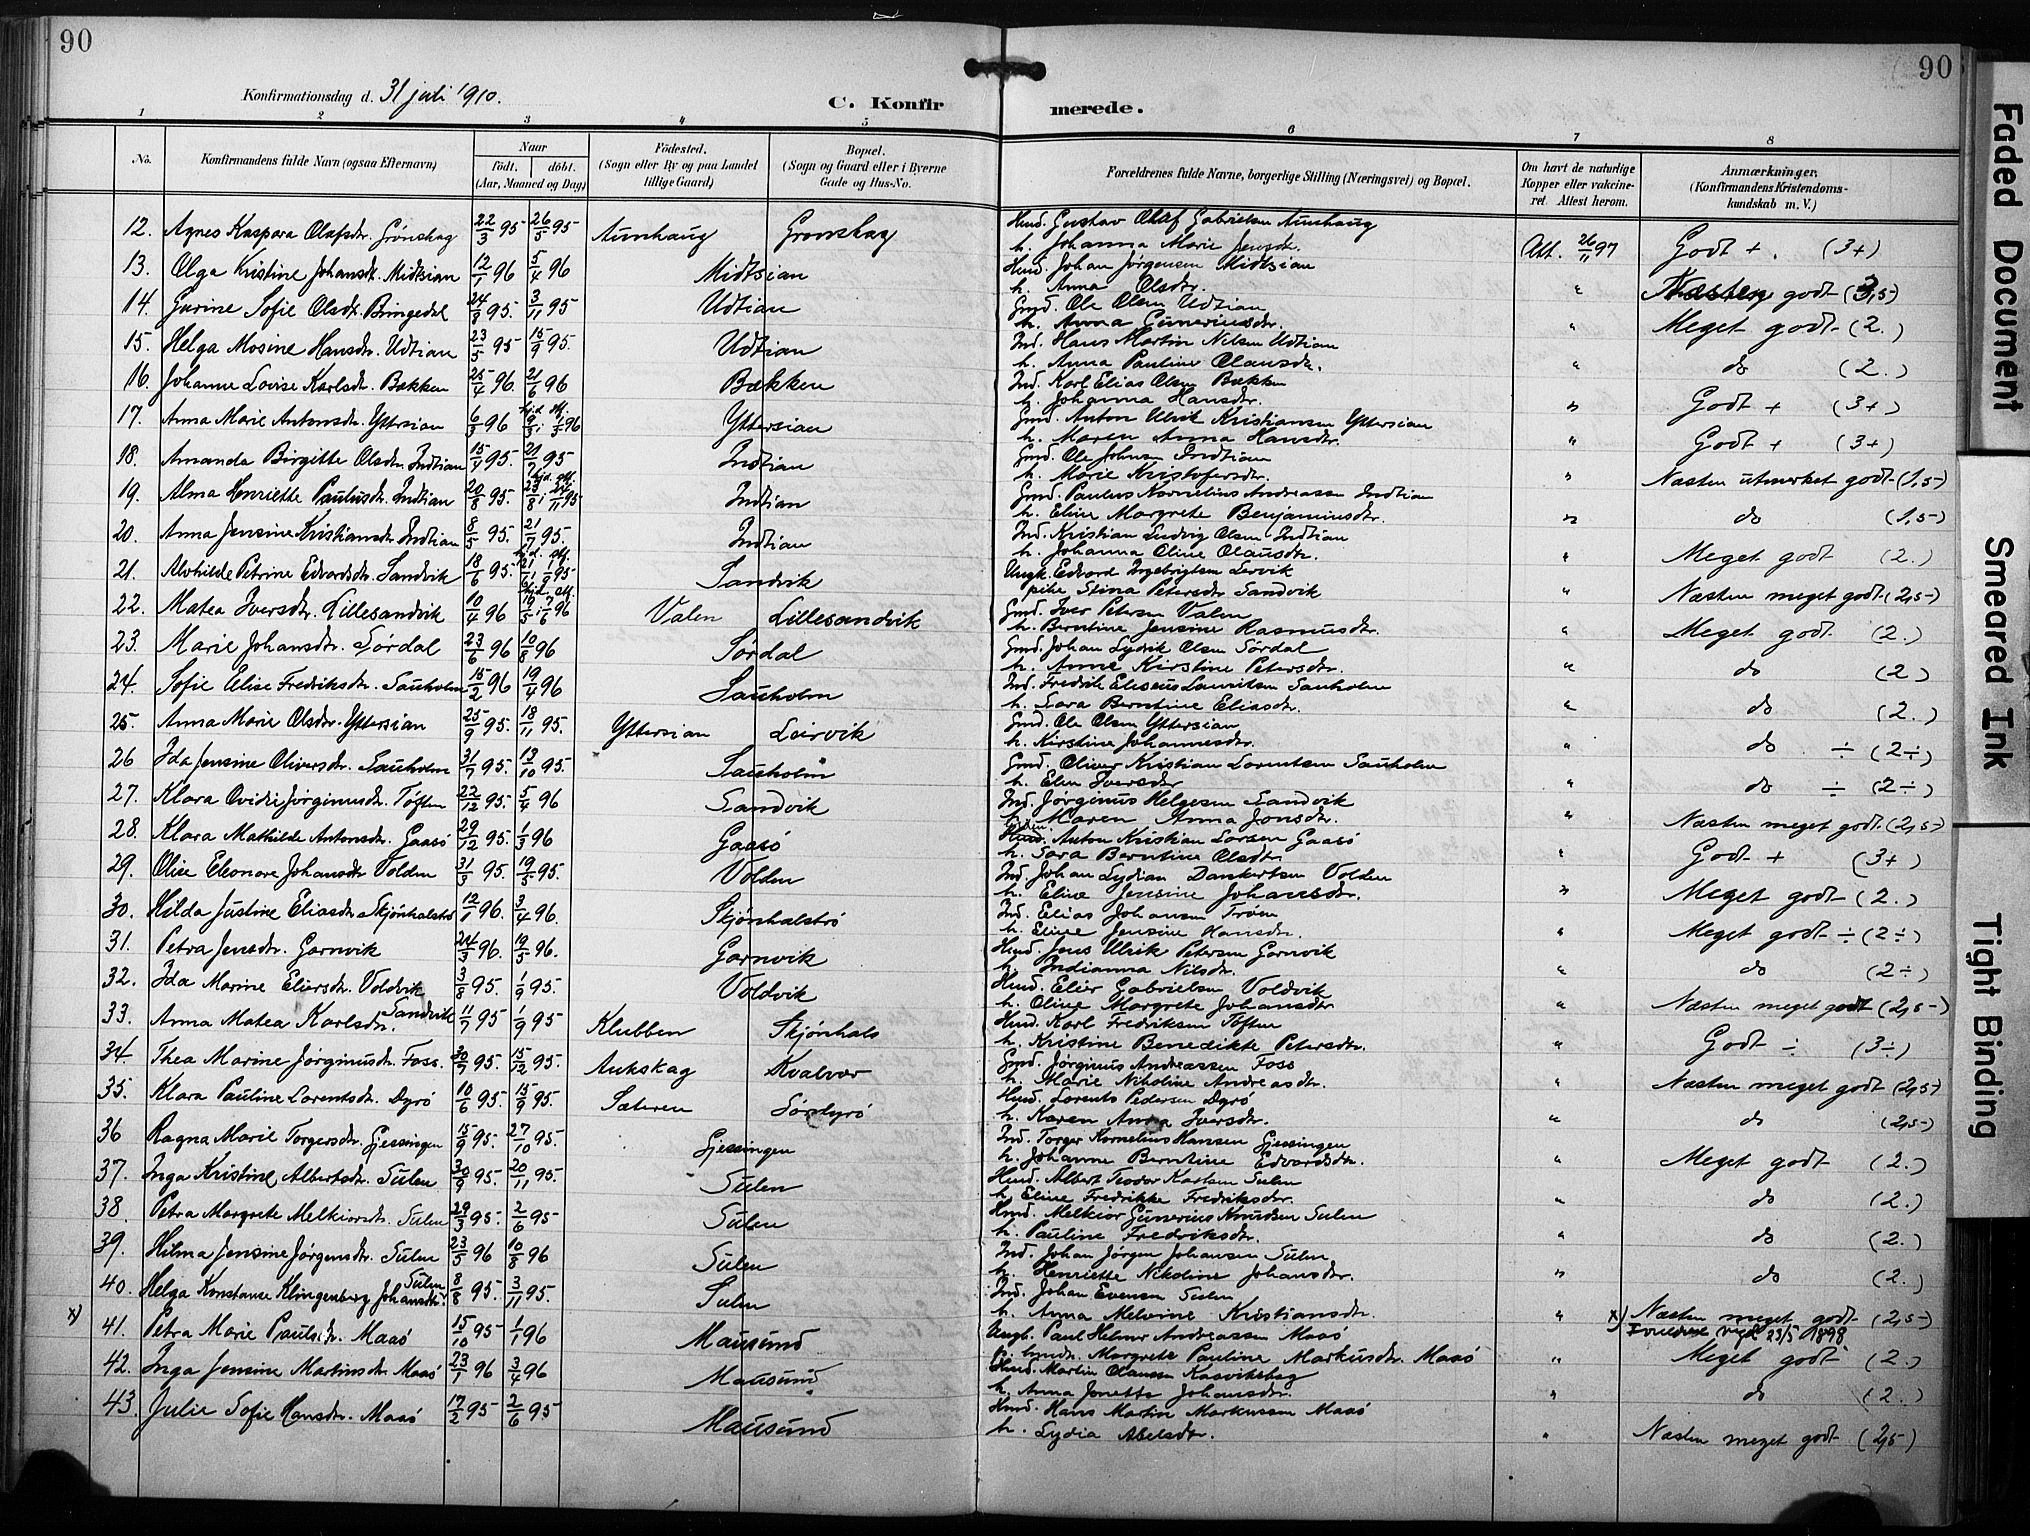 90
90
Konfirmationsdag d. 31 juli 1910.
C. Konfirmerede.
1 2 3 4 5 6 7 8
No.
Konfirmandens fulde Navn (ogsaa Efternavn)
Naar
født. døbt.
(Aar, Maaned og Dag)
Fødested.
(Sogn eller By og paa Landet
tillige Gaard)
Bopæl.
(Sogn og Gaard eller i Byerne
Gade og Hus-No.
Forældrenes fulde Navne, borgerlige Stilling (Næringsvei) og Bopæl.
Om havt de naturlige
Kopper eller vakcine-
ret Attest herom.
Anmærkninger.
(Konfirmandens Kristendoms-
kundskab m. V.)
12. Agnes Kaspara Olafsdr. Grönskag 22/3 95 26/5 95 Aunhaug Grönskag Husd. Gustav Olaf Gabrielsen Aunhaug
h. Johanna Marie Jensdr. Att. 26/11 97 Godt +. (3+)
13. Olga Kristine Johansdt. Midtsian 12/1 96 5/4 96 Midtsian Husd. Johan Jørgensen Midtsian
h. Anna Olsdr. " Næsten godt (3,5)
14. Gurine Sofie Olsdt. Bringedal 24/8 95. 3/11 95 Udtian Gmd. Ole Olsen Udtian
h. Anna Guneriusdr. " Meget godt (2.)
15. Helga Mosine Hansdtr. Udtian 23/5 95 15/9 95. Udtian Ind. Hans Martin Nilsen Udtian
h. Anna Pauline Olausdr. " do (2.)
16. Johanne Lovise Karlsdt. Bækken 25/4 96. 21/6 96 Bækken Ind. Karl Elias Olsen Bækken
h. Johanna Hansdr. " Godt + (3+)
17. Anna Marie Antonsdr. Yttersian 6/3 96 hjd. 9/3 i kj. 1/3 96 Yttersian Gmd. Anton Ulrik Kristiansen Yttersian
h. Maren Anna Hansdr. " Godt + (3+)
18. Amanda Birgitte Olsdtr. Indtian 15/4 95. 21/7 95 Indtian Gmd. Ole Johnsen Indtian
h. Marie Kristofersdr. " Næsten utmerket godt (1,5)
19. Alma Henriette Paulusdr. Indtian 20/8 95. Indtian Gmd. Paulus Kornelius Andreassen Indtian
h. Eline Margrete Benjaminsdr. " do (1,5)
20. Anna Jensine Kristiansdr. Indtian 8/5 95. 21/7 95. Indtian Ind. Kristian Ludvig Olsen Indtian
h. Johanna Oline Olausdtr. " Meget godt (2.)
21. Alvhilde Petrine Edvardsdtr. Sandvik 18/6 95. Sandvik Ungk. Edvard Ingebrigtsen Lervik
pike Stina Petersdr. Sandvik " Næsten meget godt (2,5)
22. Matea Iversdtr. Lillesandvik 10/4 96 Valen Lillesandvik Gmd. Iver Petersen Valen
h. Berntine Jensine Rasmusdtr. " Meget godt (2.)
23. Marie Johansdtr. Sørdal 23/6 96 10/8 96 Sørdal Gmd. Johan Lydrik Olsen Sørdal
h. Anne Kirstine Petersdtr. " do (2)
24. Sofie Elise Fredriksdtr. Sauholm 15/2 96 19/4 96 Sauholm Ind. Fredrik Eliseus Lauritsen Sauholm
h. Sara Berntine Eliasdtr. " do (2.)
25. Anna Marie Olsdtr. Yttersian 25/9 95. 18/11 95. Yttersian Leirvik Gmd. Ole Olsen Yttersian
h. Kirstine Johannesdtr. " do ÷ (2÷)
26 Ida Jensine Oliversdtr. Sauholm 31/7 95. 13/10 95. Sauholm Gmd. Oliver Kristian Lorentsen Sauholm
h. Elen Iversdtr " do ÷ (2÷)
27. Klara Ovidie Jörginusdr. Töften 22/12 95. 5/4 96 Sandvik Ind. Jörginus Helgesen Sandvik
h. Maren Anna Jonsdtr. " Næsten meget godt (2,5)
28. Klara Mathilde Antonsdr. Gaasö 29/12 95. 1/3 96 Gaasö Anton Kristian Larsen Gaasö
h. Sara Berntine Olsdtr. " Godt + (3+)
29. Olise Eleonore Johansdr Volden 31/3 95. 19/5 95. Volden Ind. Johan Lydian Dankertsen Volden
h. Eline Jensine Johansdtr. " Meget godt (2.)
30. Hilda Justine Eliasdr Skjönhalströ 12/1 96. 3/4 96. Skjönhalströ Ind. Elias Johansen Tröen
h. Eline Jensine Hansdtr. " Meget godt ÷ (2÷)
31. Petra Jensdtr. Garnvik 24/3 96. 19/5 96. Garnvik Husd. Jens Ulrik Petersen Garnvik
h. Indianna Nilsdtr. " do (2÷)
32. Ida Marine Eliersdr. Voldvik 3/8 95. 1/9 95. Voldvik Husd. Elier Gabrielsen Voldvik
h. Oline Margrete Johansdtr " Næsten meget godt (2,5)
33. Anna Matea Karlsdr. Sandvik 11/7 95 1/9 95 Klubben Skjönhals Husd. Karl Fredriksen Töften
h. Kristine Benedikte Petersdtr. " Godt ÷ (3÷)
34. Thea Marine Jörginusdr. Foss. 30/7 95. 15/12 95. Aukskag Kvalvær Gmd. Jörginus Andreassen Foss
h. Marie Nikoline Andreasdtr. " Næsten meget godt (2,5)
35. Klara Pauline Lorentsdr. Dyrö 10/6 95. 15/9 95. Sæteren Sördyrö Husd. Lorents Pedersen Dyrö
h. Karen Anna Iversdtr. " do (2,5)
36 Ragna Marie Torgersdtr. Gjessingen 15/9 95. 27/10 95. Gjessingen Ind. Torger Kornelius Hansen Gjessingen
h. Johanne Berntine Edvardsdtr. " Meget godt (2.)
37. Inga Kristine Albertsdtr. Sulen 30/9 95. 20/11 95. Sulen Husd. Albert Teodor Karlsen Sulen
h. Eline Fredrikke Fredriksdtr. " do (2.)
38. Petra Margrete Melkiorsdr. Sulen 29/3 95. 2/6 95 Sulen Husd. Melkior Gunerius Knudsen Sulen
h. Pauline Fredriksdtr. " do (2.)
39. Hilma Jensine Jörgensdtr. Sulen 23/5 96 10/8 96 Sulen Ind. Johan Jörgen Johansen Sulen
h. Henriette Nikoline Johansdtr. " do (2.)
40. Helga Konstanse Klingenberg Johansdtr. Sulen 8/8 95. 3/11 95. Sulen Ind. Johan Evensen Sulen
h. Anna Melvine Kristiansdtr. " x) Næsten meget godt (2,5)
x) 41. Petra Marie Paulsdtr. Maasö 15/10 95 1/1 96 Mausund Ungk. Paul Helmer Andreassen Maasö Forældrene viget 23/5 1898
Margrete Pauline Markusdtr. Maasö " Meget godt (2.)
42. Inga Jensine Martinsdtr. Maasö 23/1 96 3/4 96 Mausund Husd. Martin Olaussen Kasvikshag
h. Anna Jonette Johansdtr. " do (2.)
43. Julie Sofie Hansdtr. Maasö 17/2 95 2/6 95 Mausund Husd. Hans Martin Markussen Maasö
h. Lydia Abelsdtr. " Næsten meget godt (2,5)
Faded Document
Smeared Ink
Tight Binding